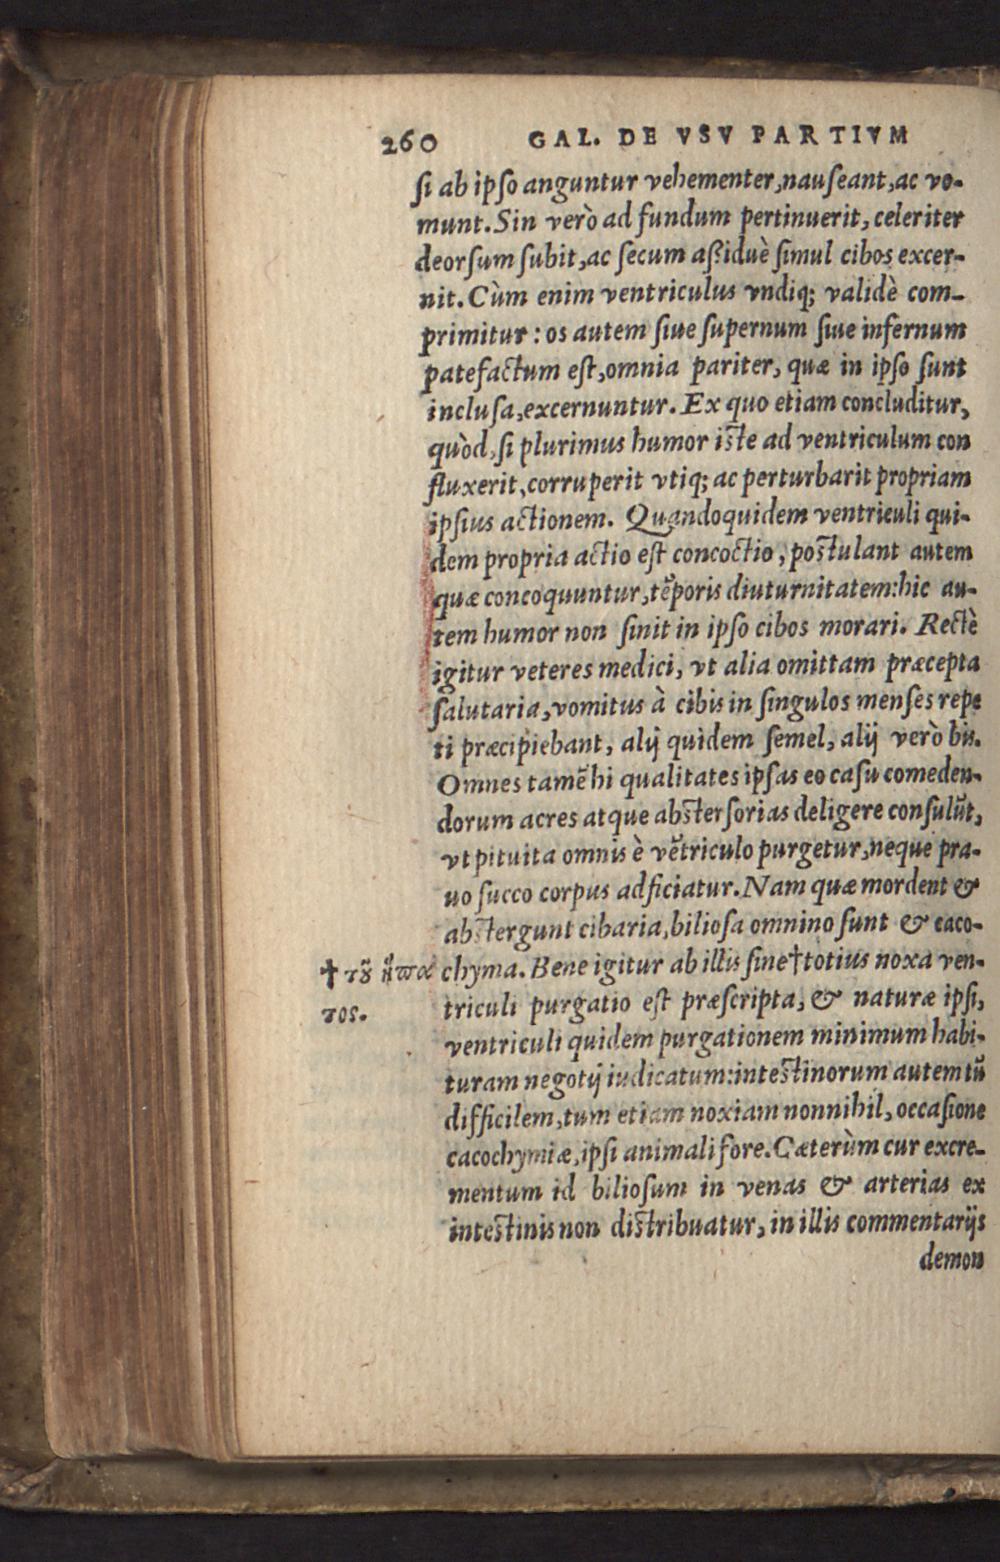 260 GAL. DE VSV PARTIVM
ſi ab ipſo anguntur vehementer, nauſeant, ac vo-
munt. Sin verò ad fundum pertinuerit, celeriter
deorſum ſubit, ac ſecum aſsiduè ſimul cibos excer-
nit. Cùm enim ventriculus vndiq; validè com-
primitur: os autem ſiue ſupernum ſiue infernum
patefactum eſt, omnia pariter, quæ in ipſo ſunt
incluſa, excernuntur. Ex quo etiam concluditur,
quòd, ſi plurimus humor iſte ad ventriculum con
fluxerit, corruperit vtiq; ac perturbarit propriam
ipſius actionem. Quandoquidem ventriculi qui-
dem propria actio eſt concoctio, poſtulant autem
quæ concoquuntur, tẽporis diuturnitatem: hic au-
tem humor non ſinit in ipſo cibos morari. Rectè
igitur veteres medici, vt alia omittam præcepta
ſalutaria, vomitus à cibis in ſingulos menſes repe
ti præcipiebant, alij quidem ſemel, alij verò bis.
Omnes tamẽ hi qualitates ipſas eo caſu comeden-
dorum acres atque abſterſorias deligere conſulũt,
vt pituita omnis è vẽtriculo purgetur, neque pra-
uo ſucco corpus adficiatur. Nam quæ mordent &
abſtergunt cibaria, bilioſa omnino ſunt & caco-
chyma. Bene igitur ab illis ſine † totius noxa ven-
triculi purgatio eſt præſcripta, & naturæ ipſi,
ventriculi quidem purgationem minimum habi-
turam negotij iudicatum: inteſtinorum autem tũ
difficilem, tum etiam noxiam nonnihil, occaſione
cacochymiæ, ipſi animali fore. Cæterùm cur excre-
mentum id bilioſum in venas & arterias ex
inteſtinis non diſtribuatur, in illis commentarijs
demon
† τȣ͂ ἥπα
τος.